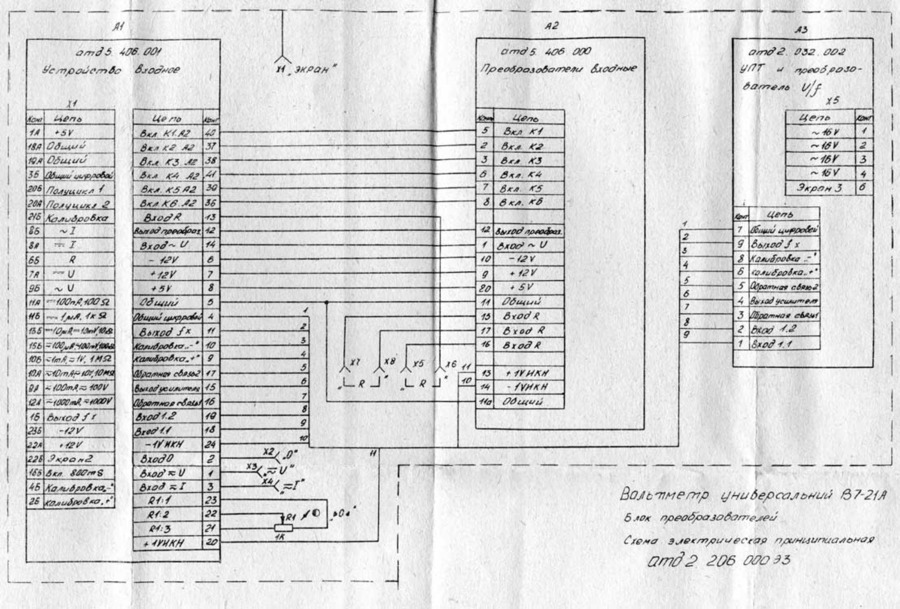 А1
атд5. 406. 001
Устройство Входное
X1
Конт Цепь
1А +5V
18А Общий
19А Общий
3Б Общий цифровой
20Б Полуцикл 1
20А Полуцикл 2
21Б Калибровка
8Б ~ I
8А ⎓ I
6Б R
7А ⎓ U
9Б ~ U
22А +12V
23Б -12V
22Б Экран2
16Б Выход fx
18Б Вкл. 800mS
4Б Калибровка„-"
2Б Калибровка„+"
Цепь Конт
Вкл. К1.А2 40
Вкл К2 А2 37
Вкл К3 А2 38
Вкл. К4 А2 41
Вкл. К5 А2 39
Вкл. К6. А2 36
Вход R 13
Выход преобраз. 12
Вход ~ U 14
-12V 6
+12V 7
+5V 8
Общий 5
Общий цифровой 4
Выход fx 11
Калибровка„-" 10
Калибровка„+" 9
Обратная связь2 17
Выход усилителя 15
Обратная связь1 16
Вход 1.2 19
Вход 1.1 18
-1V ИКН 24
Вход 0 2
Вход ≂ U 1
Вход ≂ I 3
R1:1 23
R1:2 22
R1:3 21
+1V ИКН 20
X1 „ЭКРАН"
X2 „0"
X3 ≂ U"
X4 „≂ I"
R1
1К
„▷0◁"
X7 X8 X5 X6
R R
1
2
3
4
5
6
7
8
9
10
11
11
10
А2
атд5. 406. 000
Преобразователи входные
Цепь
5 Вкл К1
2 Вкл. К2
3 Вкл. К3
6 Вкл. К4
7 Вкл. К5
8 Вкл. К6
12 Выход преобраз.
1 Вход ~ U
10 -12V
9 +12V
20 +5V
11 Общий
15 Вход R
17 Вход R
16 Вход R
13 +1V ИКН
14 -1V ИКН
11а Общий
А3
атд2. 032. 002
УПТ и преобразо-
ватель U/f
X5
Цепь Конт
~16V 1
~16V 2
~16V 3
~16V 4
Экран 3 6
Конт Цепь
7 Общий цифровой
9 Выход fx
8 Калибровка„-"
6 Калибровка„+"
5 Обратная связь2
4 Выход усилителя
3 Обратная связь1
2 Вход 1.2
1 Вход 1.1
1
2
3
4
5
6
7
8
9
Вольтметр универсальний В7-21А
Блок преобразователей
Схема электрическая принципиальная
атд2 206 000 Э3